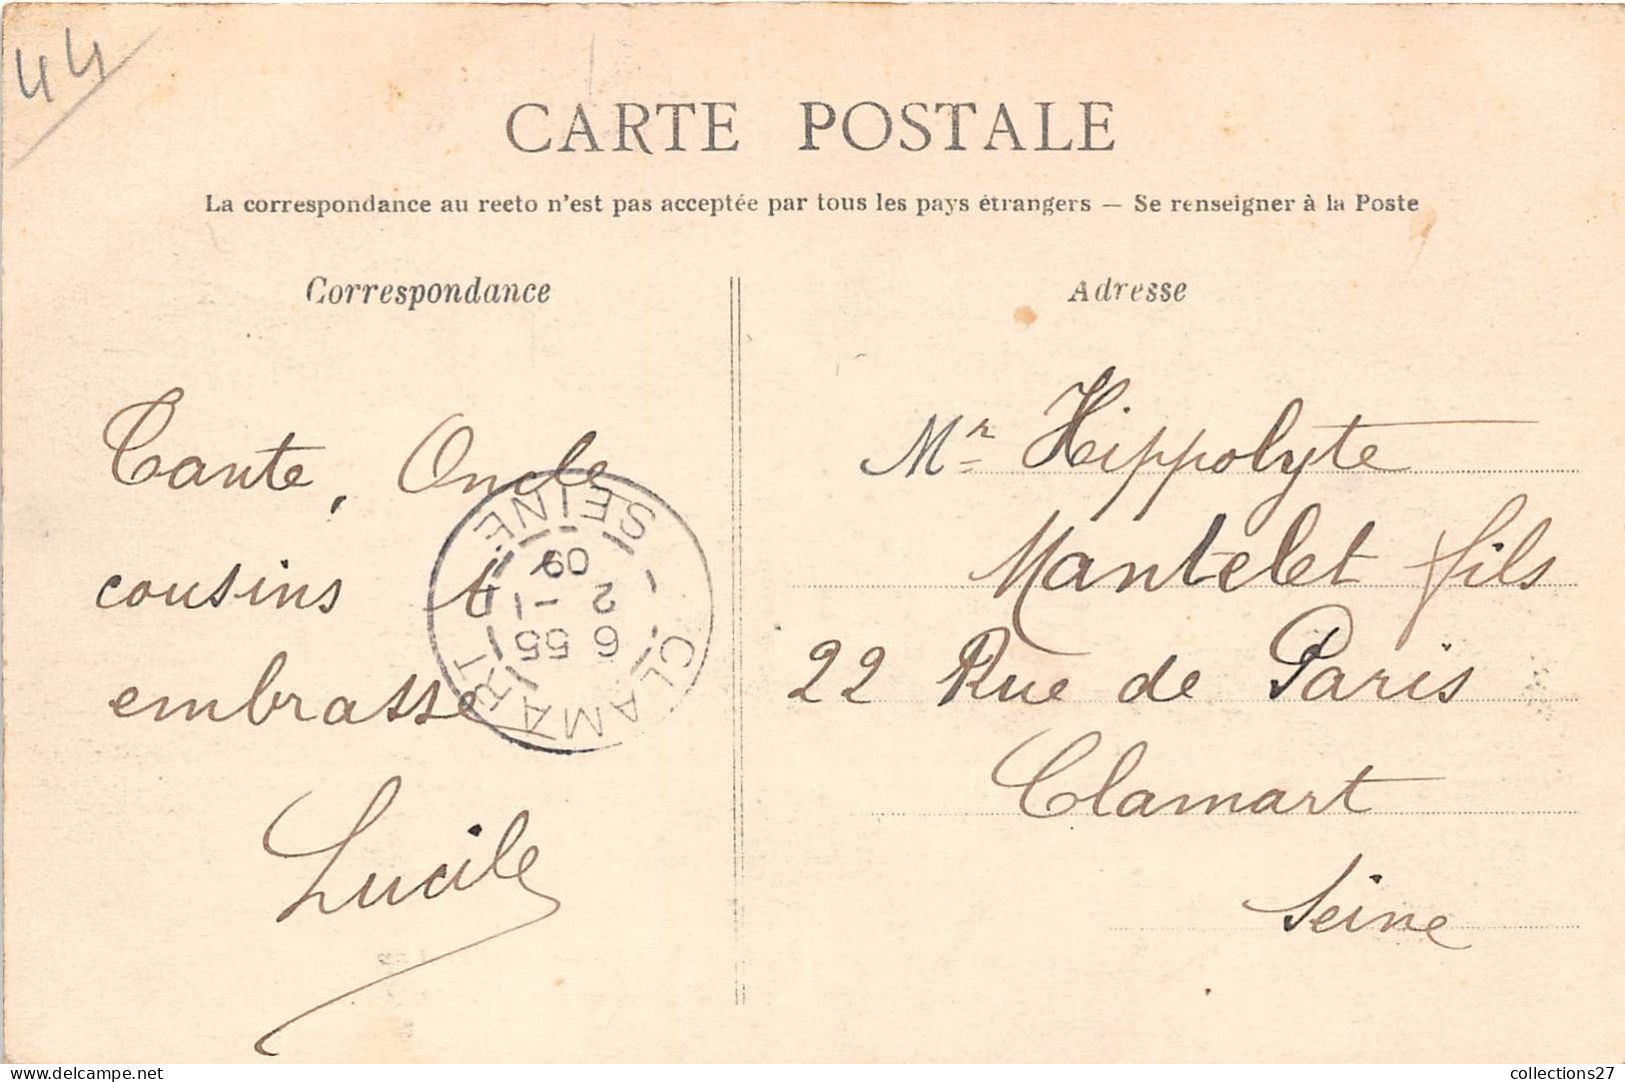 44
CARTE POSTALE
La correspondance au recto n'est pas acceptée par tous les pays étrangers — Se renseigner à la Poste
Correspondance
Tante, Oncle
cousins t'
embrasse
Lucile
CLAMART
SEINE
6 55
2 - 1
09
Adresse
Mr Hippolyte
Mantelet fils
22 Rue de Paris
Clamart
Seine
collections27